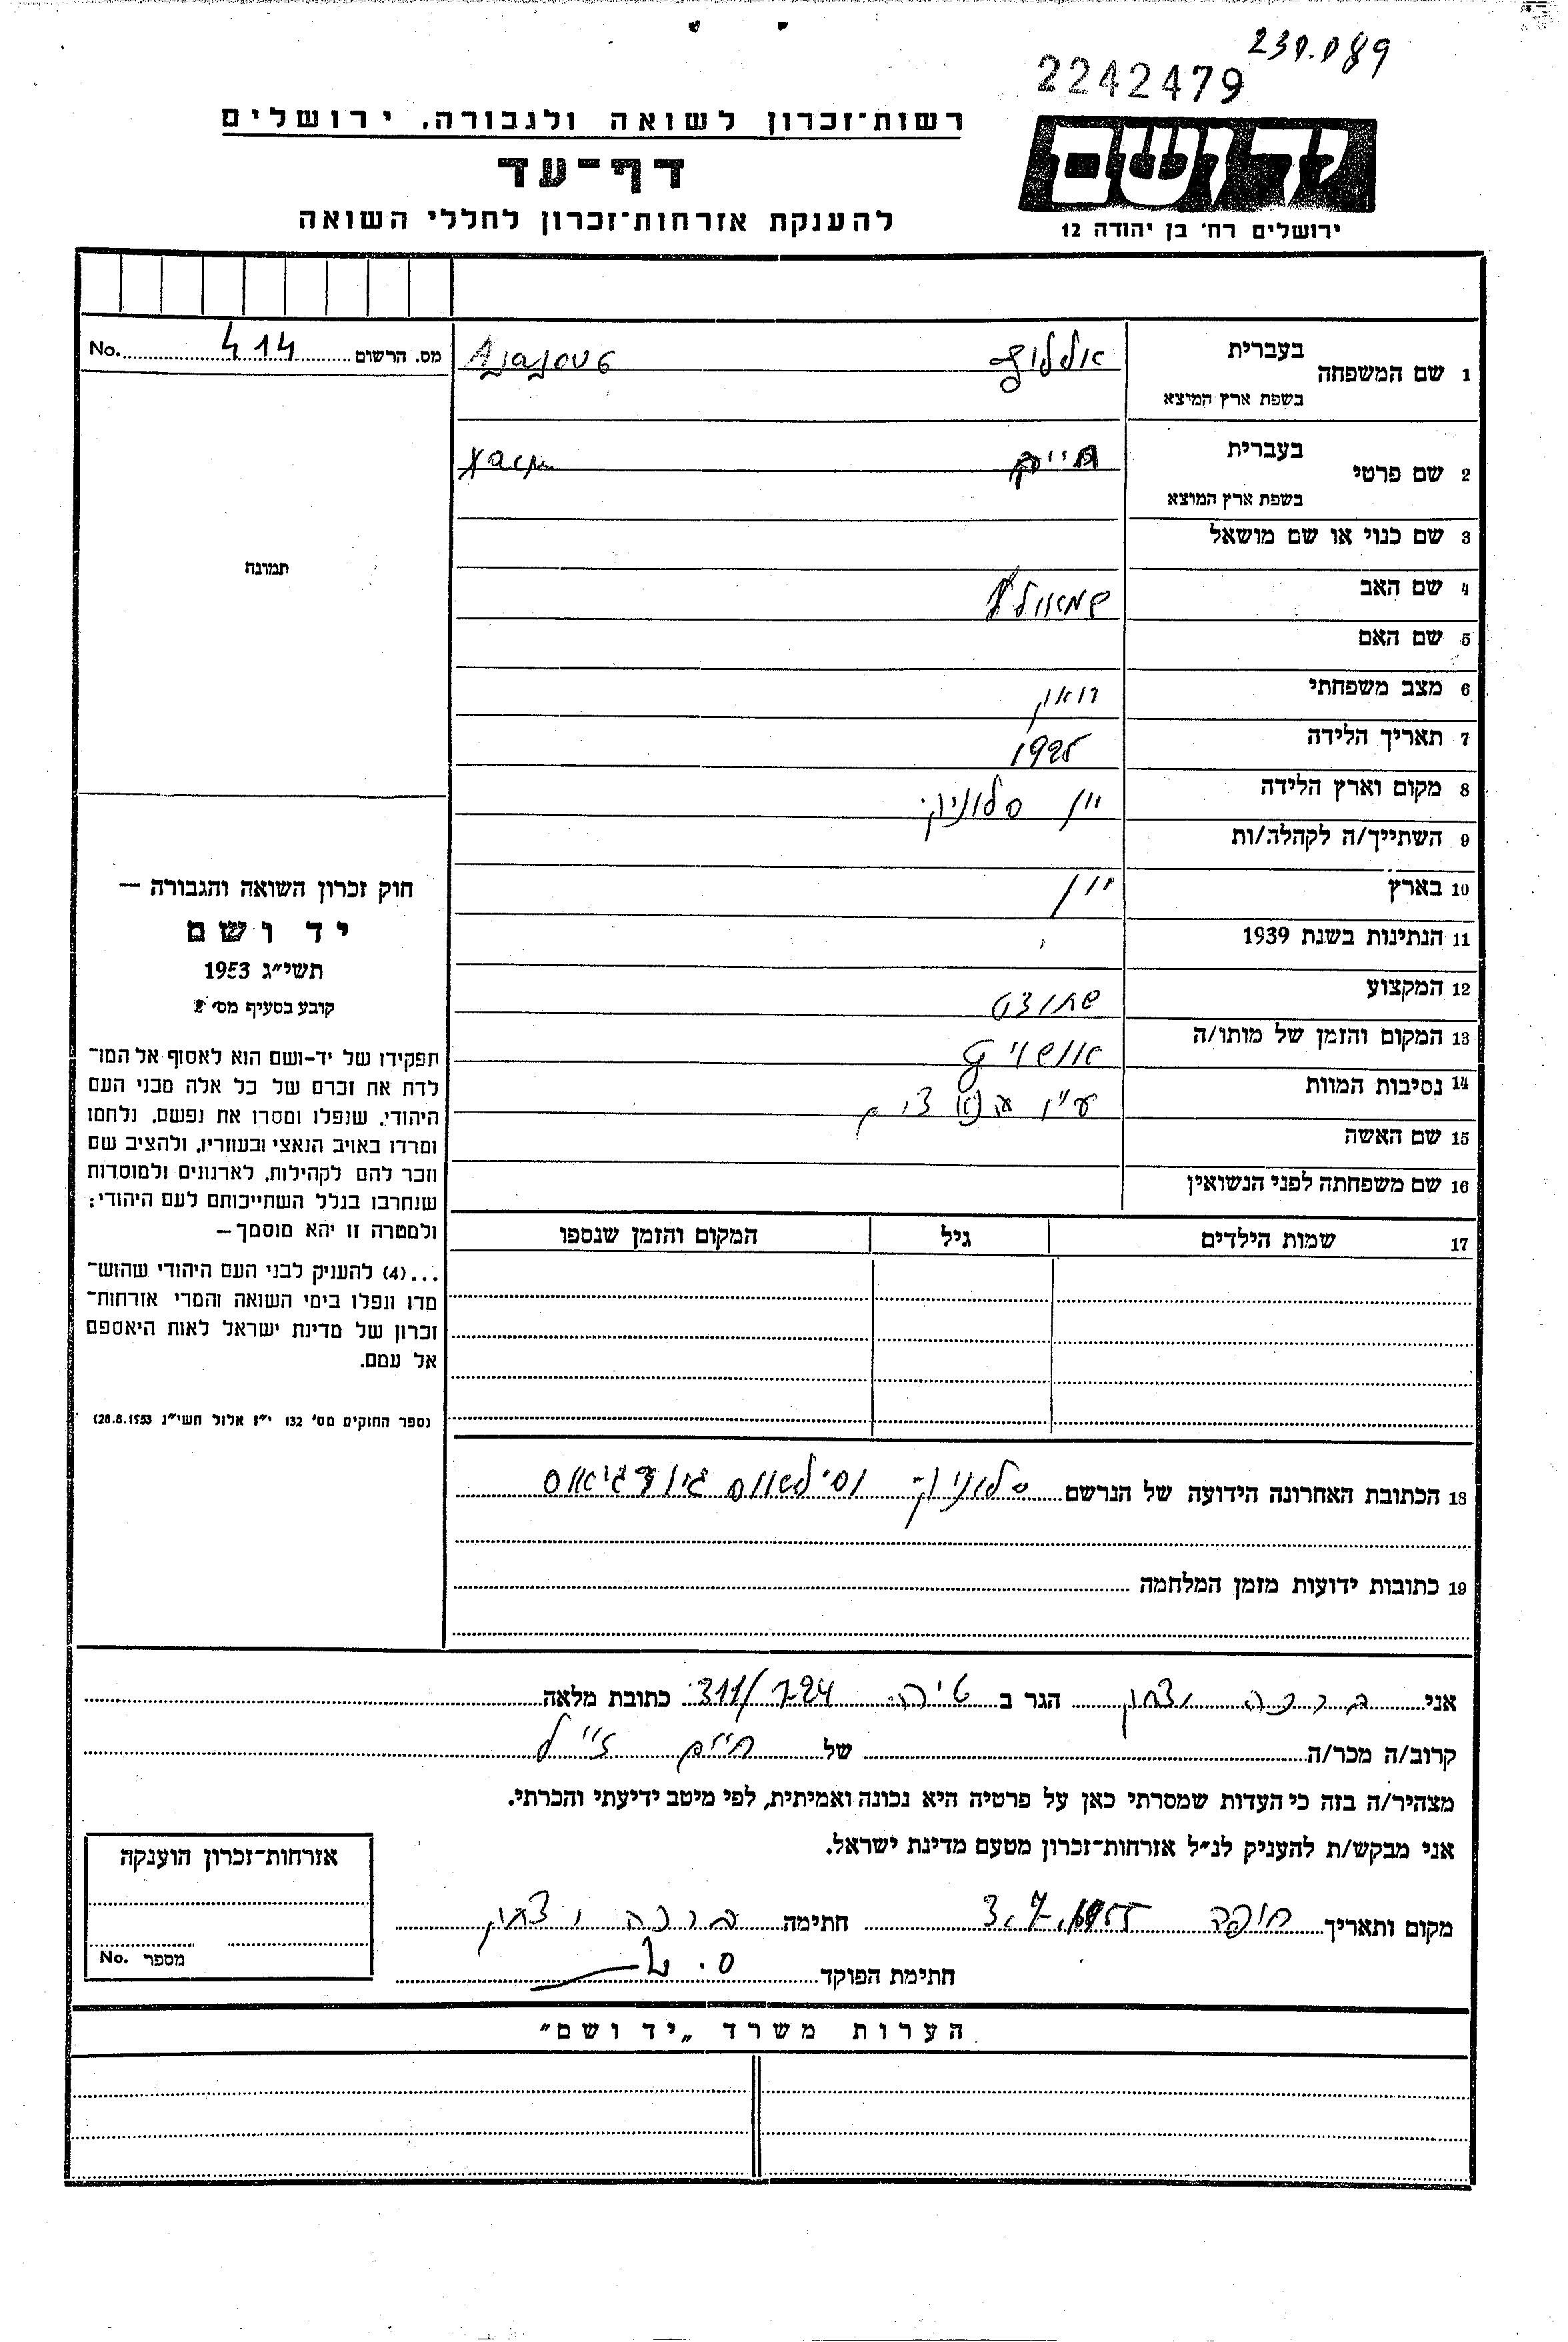 239.089
2242479
רשות־זכרון לשואה ולגבורה, ירושלים
יד ושם
דף־עד
להענקת אזרחות־זכרון לחללי השואה
ירושלים רח' בן יהודה 12
מס. הרשום 414 No.
1 שם המשפחה
בעברית אללוף
בשפת ארץ המיצא
2 שם פרטי
בעברית חיים
בשפת ארץ המוצא
3 שם כנוי או שם מושאל
4 שם האב שמואל
5 שם האם
6 מצב משפחתי רואק
7 תאריך הלידה 1925
8 מקום וארץ הלידה יון סלוניקי
9 השתייך/ה לקהלה/ות
10 בארץ יון
11 הנתינות בשנת 1939
12 המקצוע
13 המקום והזמן של מותו/ה אושויץ
14 נסיבות המוות ע"י הנאצים
15 שם האשה
16 שם משפחתה לפני הנשואין
17 שמות הילדים גיל המקום והזמן שנספו
תמונה
חוק זכרון השואה והגבורה —
יד ושם
תשי"ג 1953
קובע בסעיף מס' 2
תפקידו של יד-ושם הוא לאסוף אל המו־
לדת את זכרם של כל אלה מבני העם
היהודי, שנפלו ומסרו את נפשם, נלחמו
ומרדו באויב הנאצי ובעוזריו, ולהציב שם
וזכר להם לקהילות, לארגונים ולמוסדות
שנחרבו בגלל השתייכותם לעם היהודי;
ולמטרה זו יהא מוסמך—
...(4) להעניק לבני העם היהודי שהוש־
מדו ונפלו בימי השואה והמרי אזרחות־
זכרון של מדינת ישראל לאות היאספם
אל עמם.
(ספר החוקים מס' 132 י"ז אלול תשי"ג 28.8.1953)
18 הכתובת האחרונה הידועה של הנרשם סלוניקי וסילאוס גיורגיאוס
19 כתובות ידועות מזמן המלחמה
אני ברכה יצחק הגר ב טירה 311/724 כתובת מלאה
קרוב/ה מכר/ה של חיים ז"ל
מצהיר/ה בזה כי העדות שמסרתי כאן על פרטיה היא נכונה ואמיתית, לפי מיטב ידיעתי והכרתי.
אני מבקש/ת להעניק לנ"ל אזרחות־זכרון מטעם מדינת ישראל.
מקום ותאריך חיפה 3.7.1955 חתימה ברכה יצחק
חתימת הפוקד
אזרחות־זכרון הוענקה
מספר No.
הערות משרד „יד ושם"